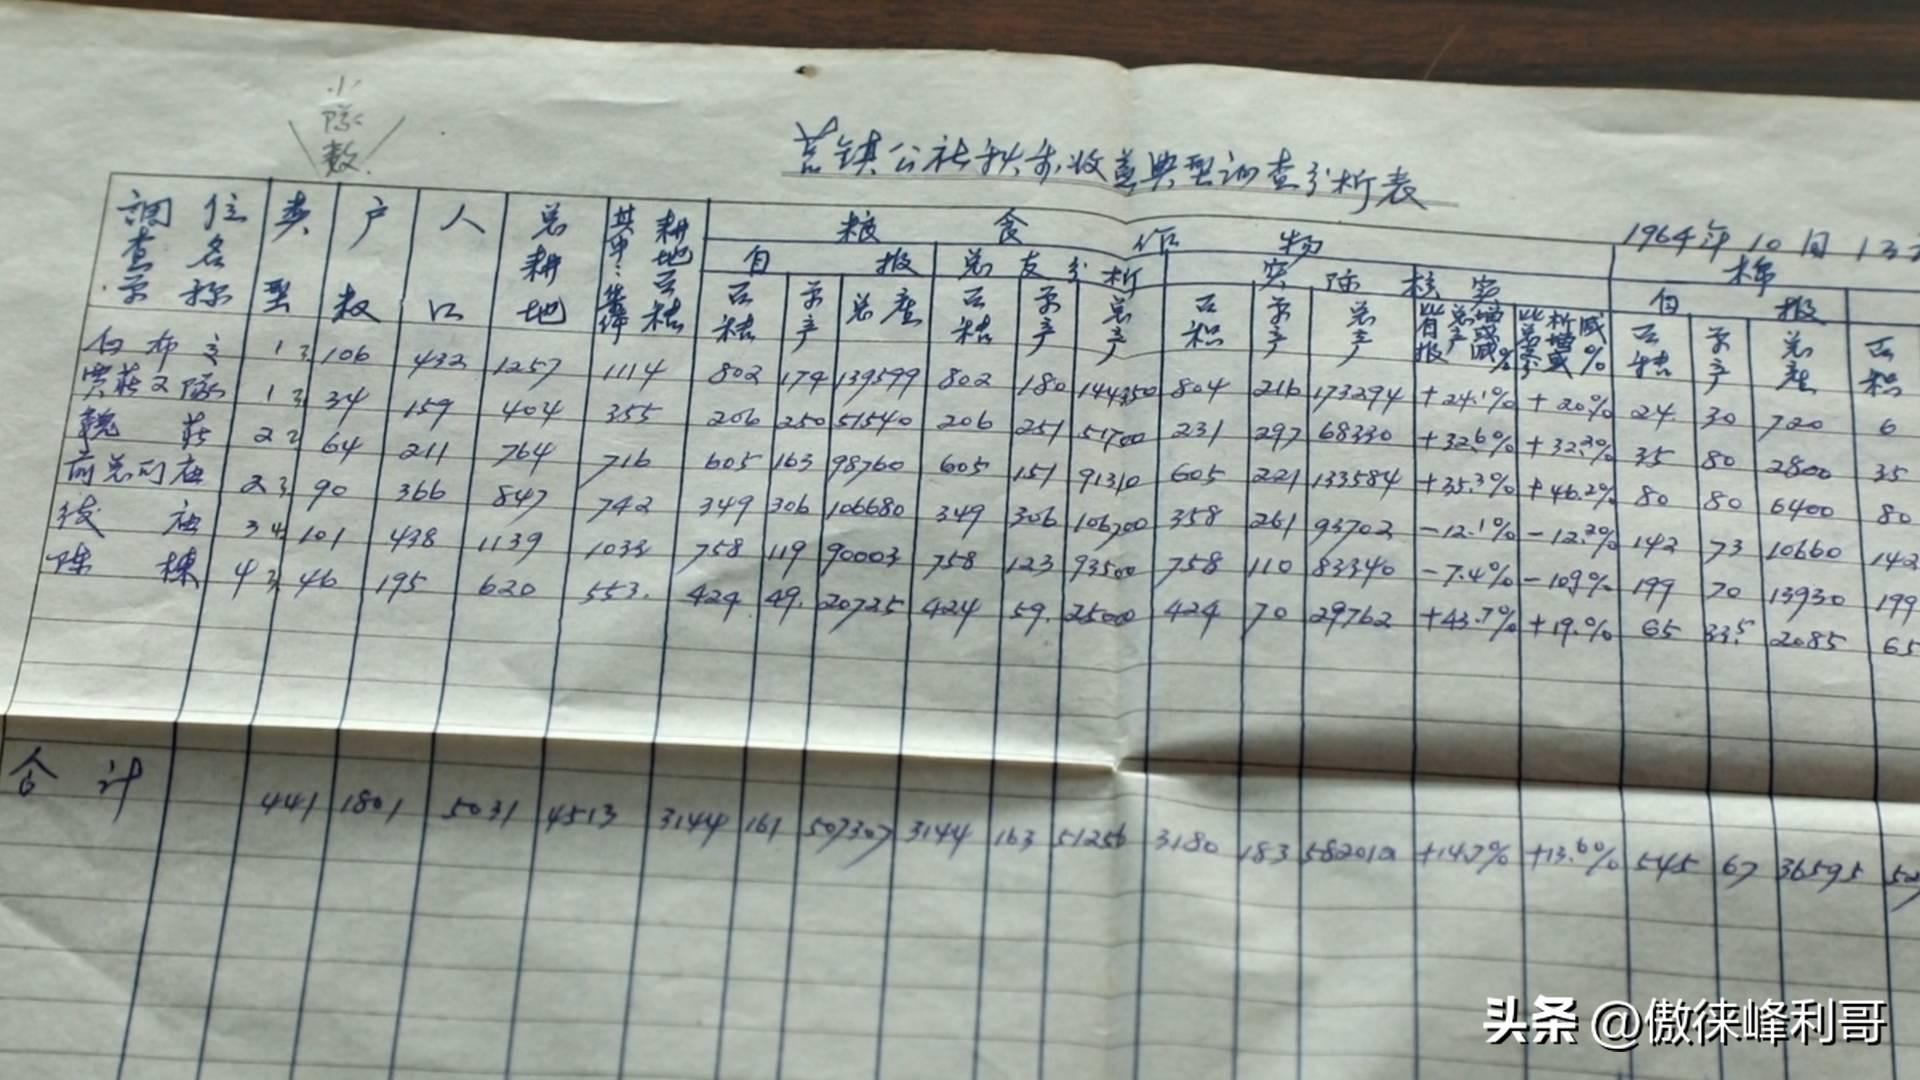 小
隊
数
公社秋季收益典型调查分析表
1964年10月13
调查单位名称 类型 户数 人口 总耕地 其中:集体耕地面积 粮食作物 棉
自报 总支分析 实际核实 自报
亩积 单产 总产 亩积 单产 总产 亩积 单产 总产 比自报总产增减% 亩积 单产 总产 亩积
1 3 106 432 1257 1114 802 174 139599 802 180 144350 804 216 173294 +24.1% +20% 24 30 720 6
贾莊2隊 1 3 34 159 404 355 206 250 51540 206 251 51700 231 297 68330 +32.6% +32.2% 35 80 2800 35
魏莊 2 2 64 211 764 716 605 163 98760 605 151 91310 605 221 133584 +35.3% +46.2% 80 80 6400 80
2 3 90 366 847 742 349 306 106680 349 306 106700 358 261 93702 -12.1% -12.2% 142 73 10660 142
3 4 101 438 1139 1033 758 119 90003 758 123 93500 758 110 83340 -7.4% -10.9% 199 70 13930 199
陈栋 4 3 46 195 620 553. 424 49. 20725 424 59. 25000 424 70 29762 +43.7% +19.% 65 33.5 2085 65
合计 441 1801 5031 4513 3144 161 507307 3144 163 51256 3180 183 582012 +14.7% +13.6% 545 67 36595
头条 @傲徕峰利哥